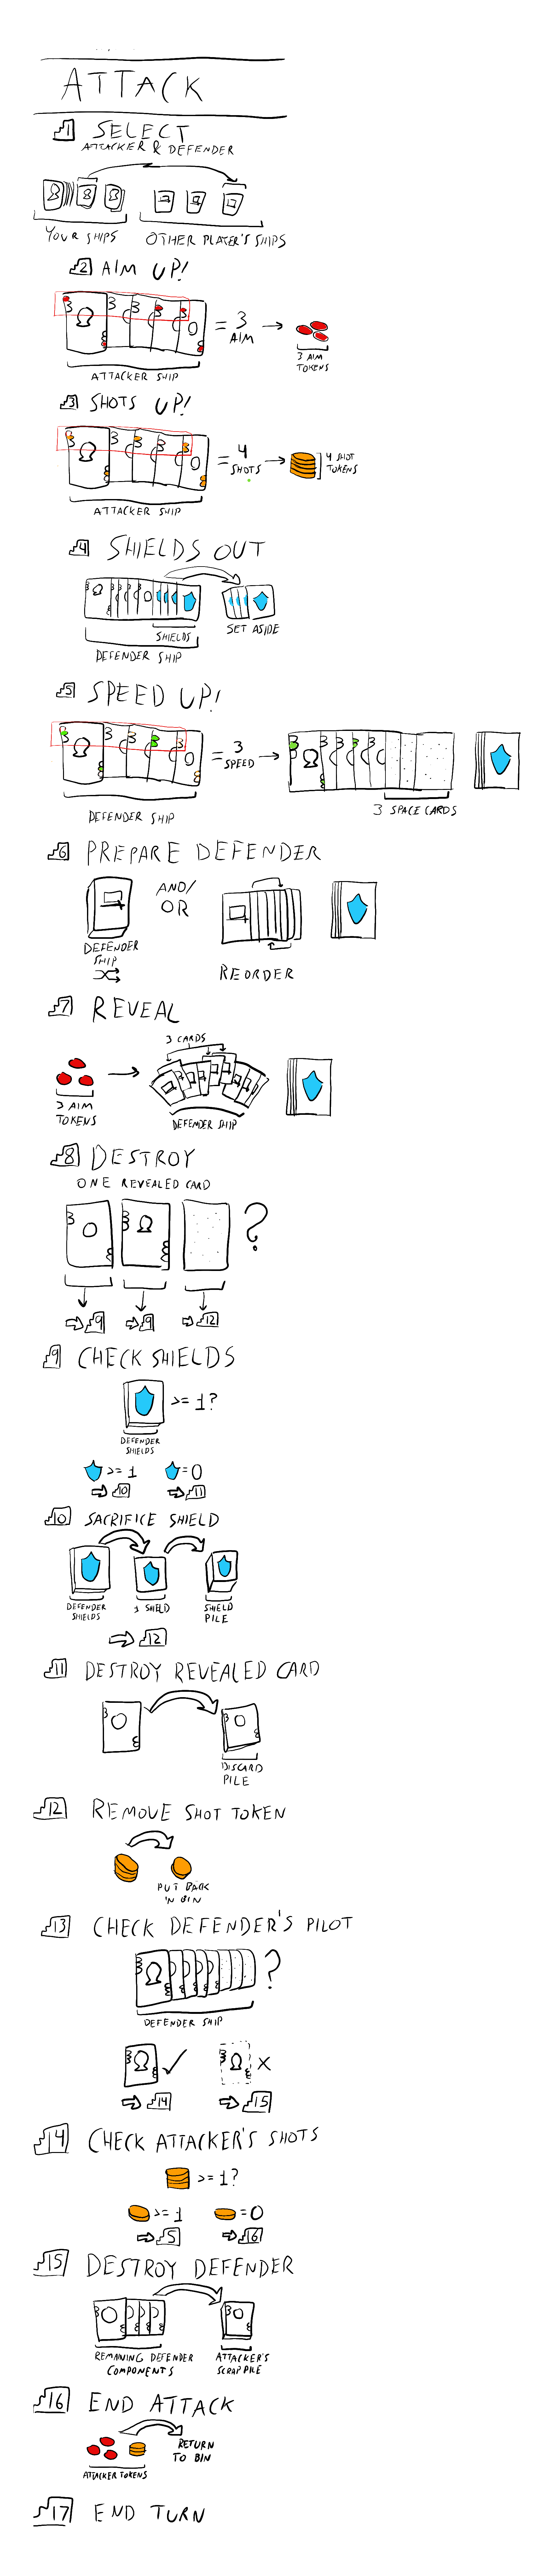 ATTACK
1 SELECT
ATTACKER & DEFENDER
YOUR SHIPS
OTHER PLAYER'S SHIPS
2 AIM UP!
= 3
AIM
ATTACKER SHIP
3 AIM
TOKENS
3 SHOTS UP!
= 4
SHOTS
4 SHOT
TOKENS
ATTACKER SHIP
4 SHIELDS OUT
SHIELDS
SET ASIDE
DEFENDER SHIP
5 SPEED UP!
= 3
SPEED
DEFENDER SHIP
3 SPACE CARDS
6 PREPARE DEFENDER
AND/
OR
DEFENDER
SHIP
REORDER
7 REVEAL
3 CARDS
3 AIM
TOKENS
DEFENDER SHIP
8 DESTROY
ONE REVEALED CARD
?
9 9 12
9 CHECK SHIELDS
>= 1?
DEFENDER
SHIELDS
>= 1 = 0
10 11
10 SACRIFICE SHIELD
DEFENDER
SHIELDS
1 SHIELD
SHIELD
PILE
12
11 DESTROY REVEALED CARD
DISCARD
PILE
12 REMOVE SHOT TOKEN
PUT BACK
IN BIN
13 CHECK DEFENDER'S PILOT
?
DEFENDER SHIP
14 15
14 CHECK ATTACKER'S SHOTS
>= 1?
>= 1 = 0
5 16
15 DESTROY DEFENDER
REMAINING DEFENDER
COMPONENTS
ATTACKER'S
SCRAP PILE
16 END ATTACK
RETURN
TO BIN
ATTACKER TOKENS
17 END TURN